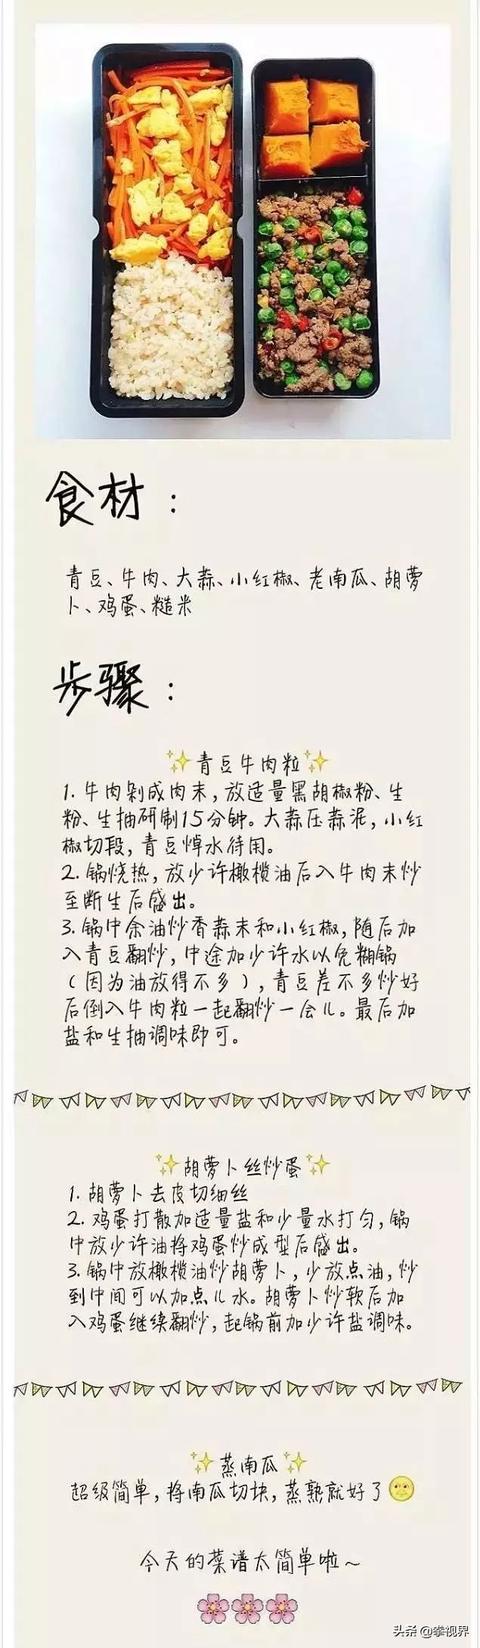 食材：
青豆、牛肉、大蒜、小红椒、老南瓜、胡萝
卜、鸡蛋、糙米
步骤：
✨青豆牛肉粒✨
1. 牛肉剁成肉末，放适量黑胡椒粉、生
粉、生抽研制15分钟。大蒜压蒜泥，小红
椒切段，青豆焯水待用。
2. 锅烧热，放少许橄榄油后入牛肉末炒
至断生后盛出。
3. 锅中余油炒香蒜末和小红椒，随后加
入青豆翻炒，中途加少许水以免糊锅
（因为油放得不多），青豆差不多炒好
后倒入牛肉粒一起翻炒一会儿。最后加
盐和生抽调味即可。
✨胡萝卜丝炒蛋✨
1. 胡萝卜去皮切细丝
2. 鸡蛋打散加适量盐和少量水打匀，锅
中放少许油将鸡蛋炒成型后盛出。
3. 锅中放橄榄油炒胡萝卜，少放点油，炒
到中间可以加点儿水。胡萝卜炒软后加
入鸡蛋继续翻炒，起锅前加少许盐调味。
✨蒸南瓜✨
超级简单，将南瓜切块，蒸熟就好了🌝
今天的菜谱太简单啦~
🌸🌸🌸
头条@攀视界